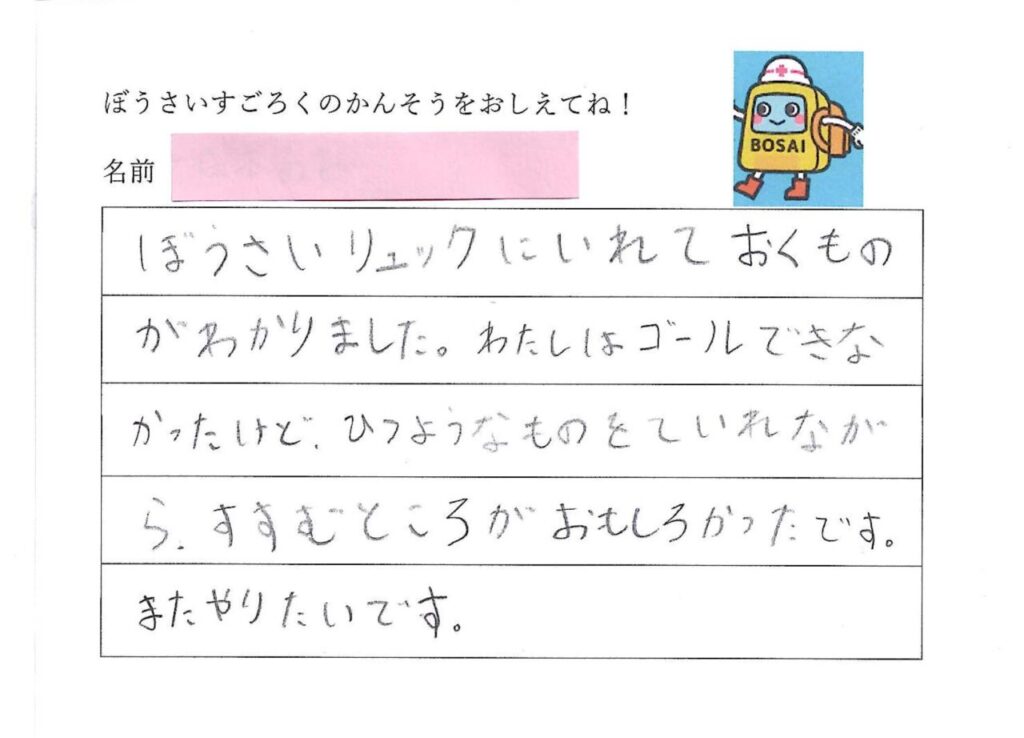 ぼうさいすごろくのかんそうをおしえてね！
BOSAI
名前
ぼうさいリュックにいれておくもの
がわかりました。わたしはゴールできな
かったけど、ひつようなものをていれなが
ら、すすむところがおもしろかったです。
またやりたいです。